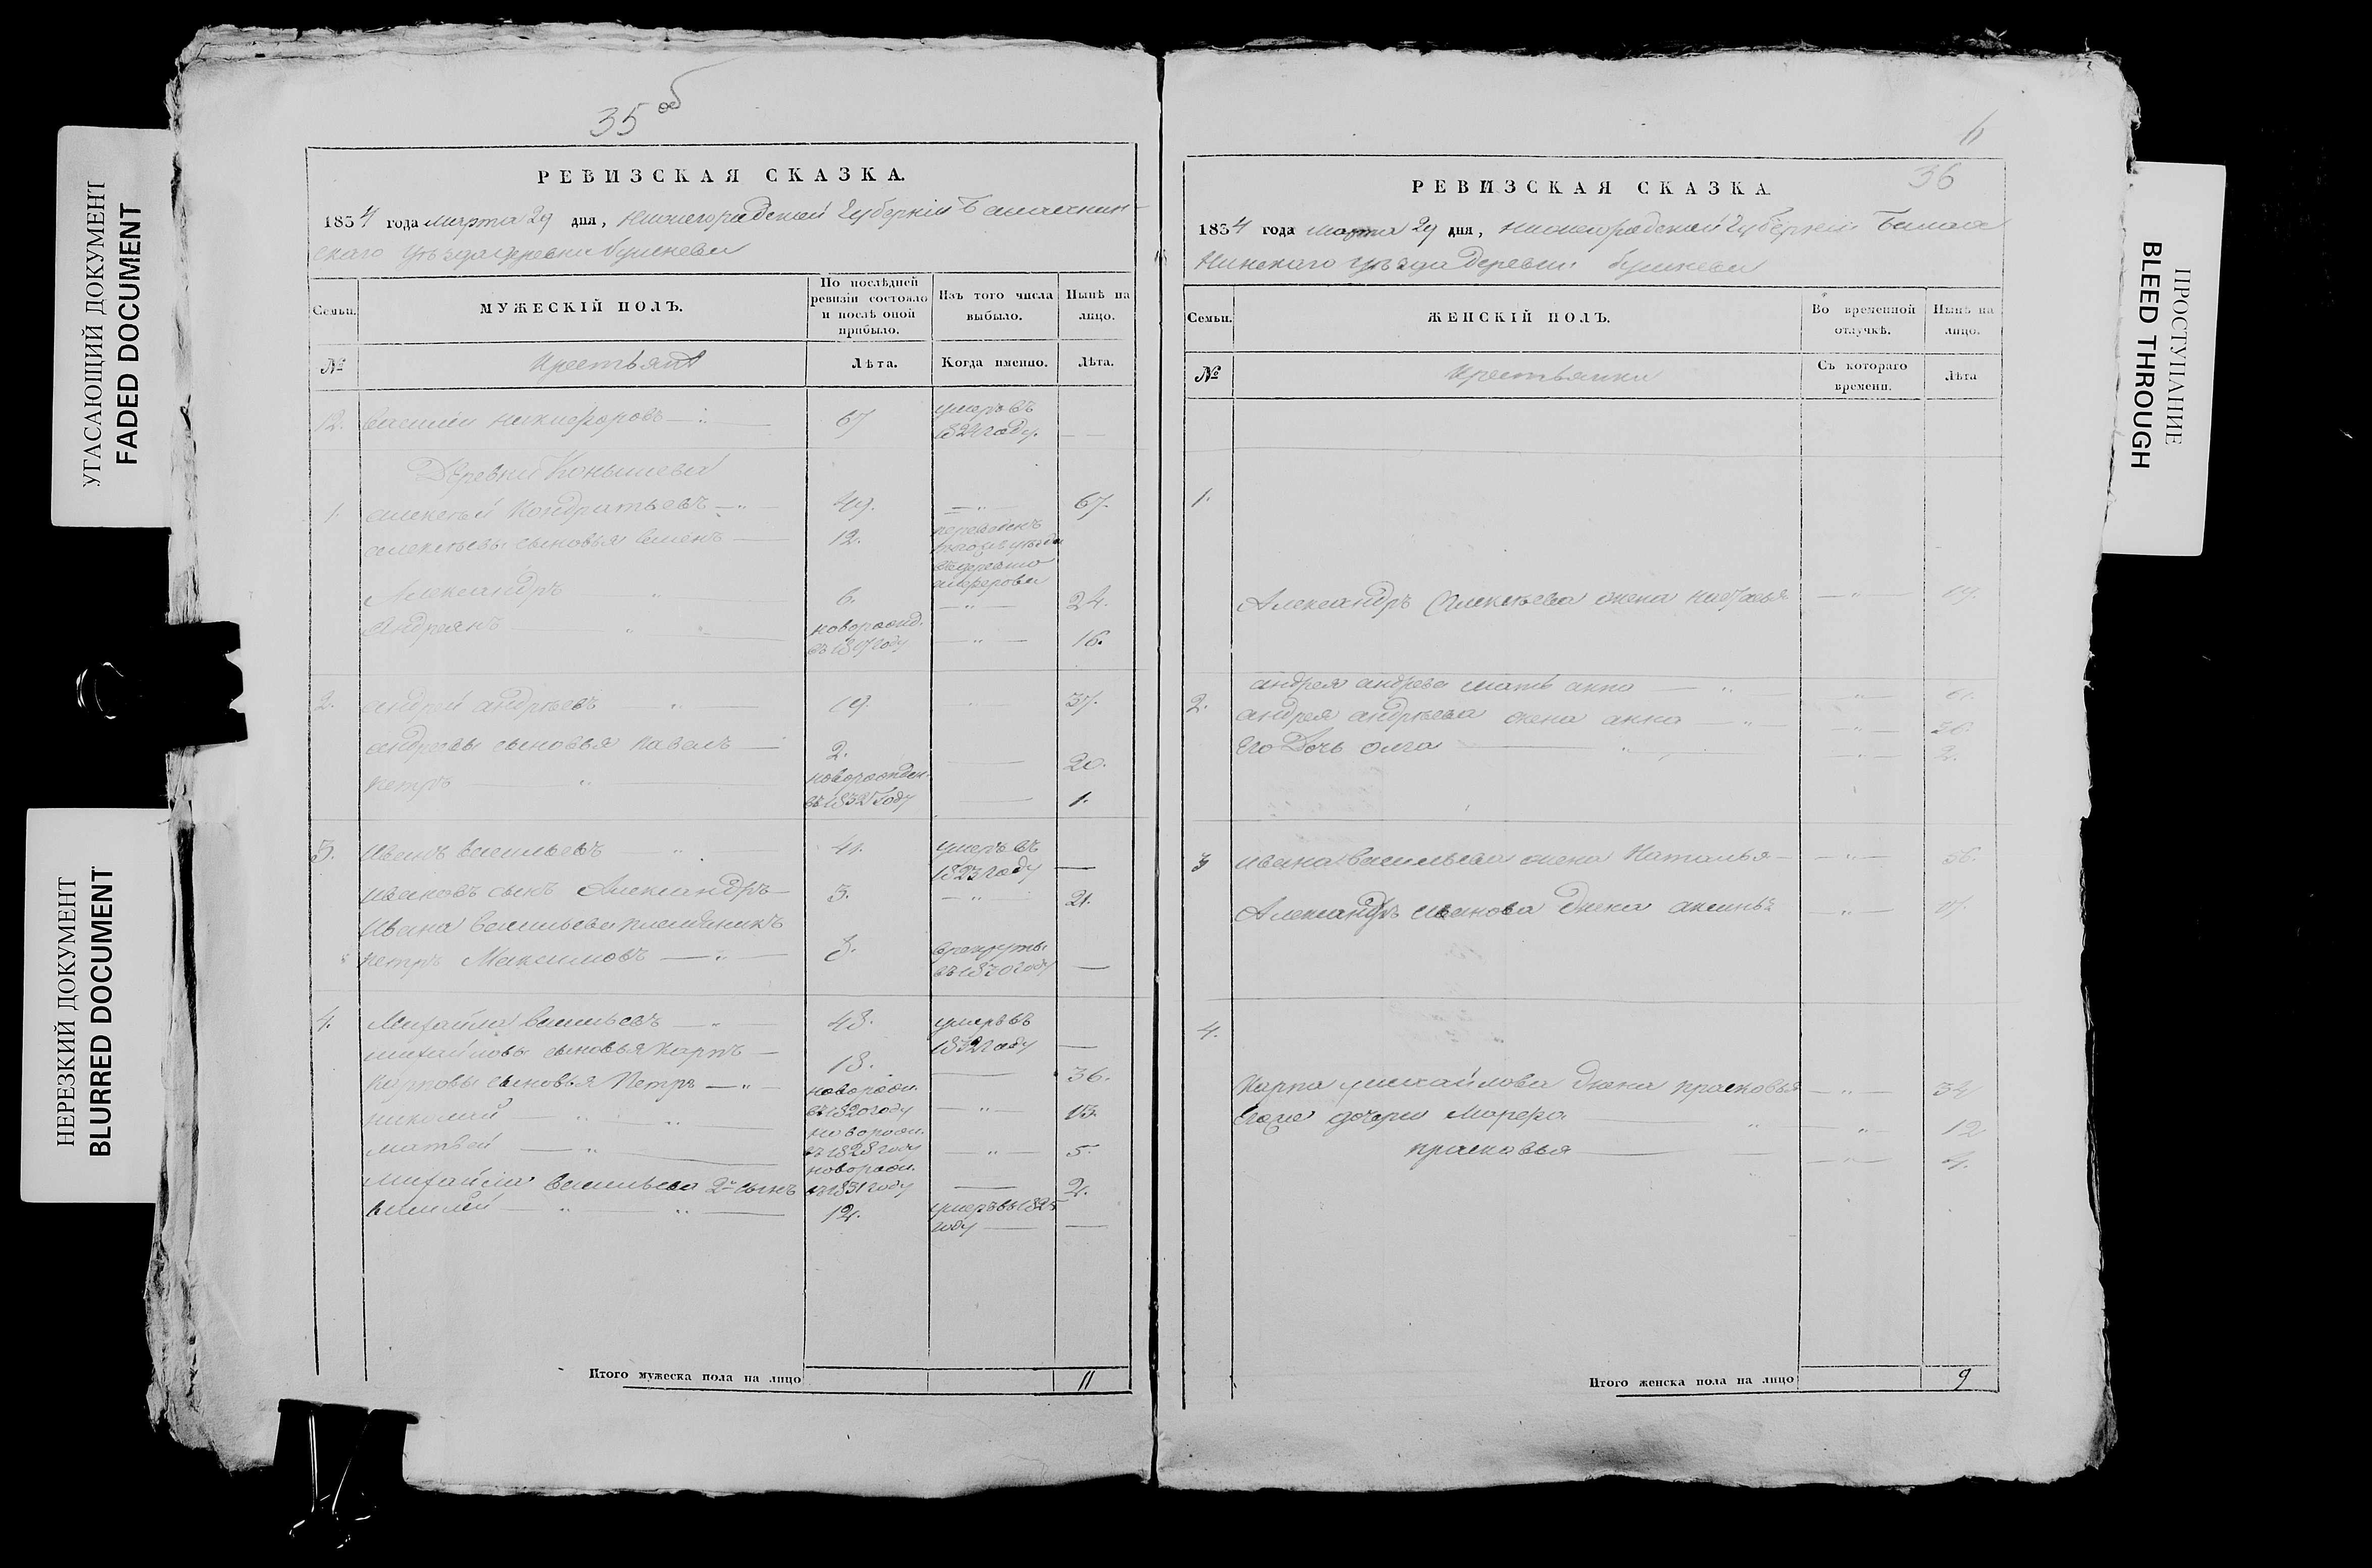 УГАСАЮЩИЙ ДОКУМЕНТ
FADED DOCUMENT
НЕРЕЗКИЙ ДОКУМЕНТ
BLURRED DOCUMENT
35 об
РЕВИЗСКАЯ СКАЗКА.
1834 года марта 29 дня, Нижегородской Губернiи Балахнин
скаго уѣзда деревни
Семьи.
МУЖЕСКІЙ ПОЛЪ.
По послѣдней ревизіи состояло и послѣ оной прибыло.
Изъ того числа выбыло.
Нынѣ на лицо.
№
Крестьянъ
Лѣта.
Когда именно.
Лѣта.
12. Василий Никифоровъ 67 умеръ въ
1824 году.
Деревни Конышева
1. алексѣй Кондратьевъ 49. 67.
алексѣевы сыновья Семенъ 12. переведенъ
Александръ 6. 24.
Андреянъ новорожд. 16.
въ 1817 году
2. андрей андрѣевъ 19. 37.
андреевы сыновья павелъ 2. 20.
петръ новорожден.
въ 1832 году 1.
3. Иванъ васильевъ 41. умеръ въ
1823 году
ивановъ сынъ Александръ 3. 21.
Ивана Васильева племянникъ
петръ Максимовъ 3. врекруты
въ 1830 году
4. Михайла васильевъ 48. умеръ въ
1832 году
михайловы сыновья карпъ 18. 36.
Карповы сыновья Петръ новорожд.
въ 1820 году 13.
николай новорожд.
въ 1828 году 5.
матвей новорожд.
въ 1831 году 2.
Михайла васильева 2й сынъ
василий 12. умеръ въ 1825
году
Итого мужеска пола на лицо 11
6
36
РЕВИЗСКАЯ СКАЗКА.
1834 года марта 29 дня, Нижегородской Губернiи Балах
Нинскаго уѣзда Деревни
Семьи.
ЖЕНСКІЙ ПОЛЪ.
Во временной отлучкѣ.
Нынѣ на лицо.
№
Крестьянки
Съ котораго времени.
Лѣта
1.
Александръ Алексѣева жена настасья 19.
андрея андрева мать анна
2. андрея андрѣева жена анна 36.
Его Дочь олга 2.
3 ивана васильева жена Наталья 56.
Александръ иванова жена аксинья
4.
Карпа михайлова жена прасковья 34
Егоже дочери Марфа 12
прасковья 4.
Итого женска пола на лицо 9
ПРОСТУПАНИЕ
BLEED THROUGH